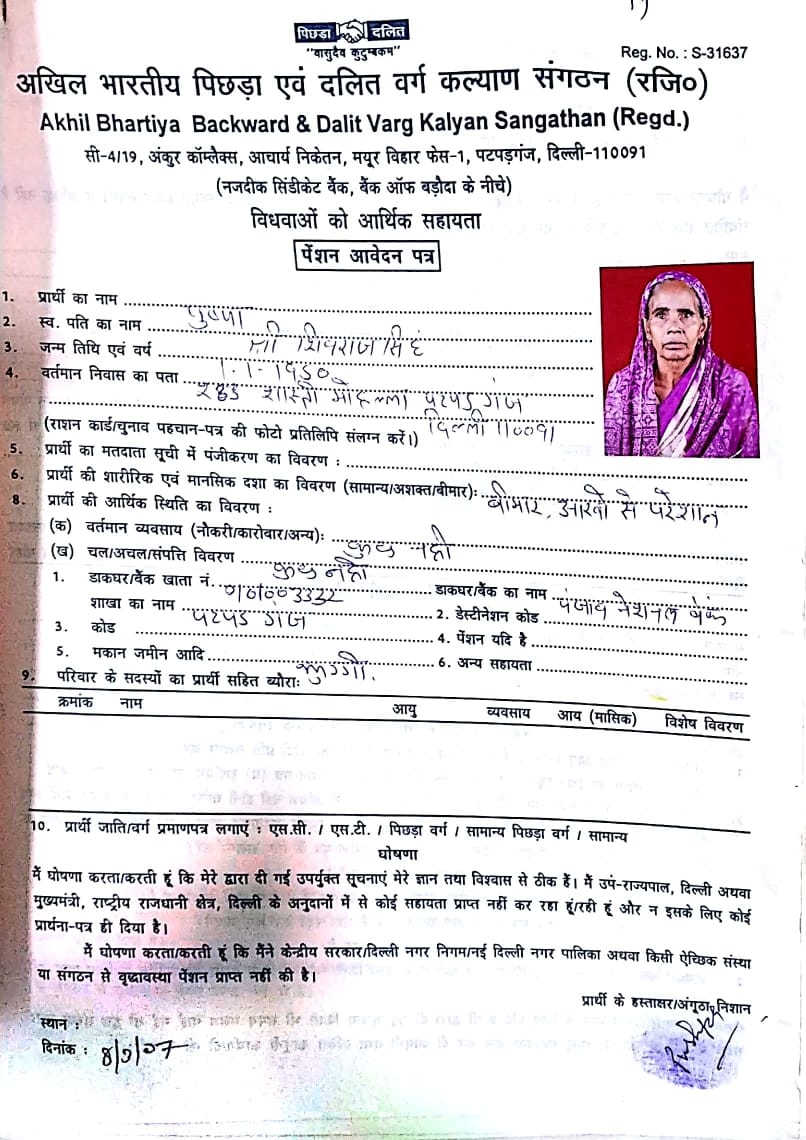 पिछड़ा दलित
"वासुदैव कुटुम्बकम"
Reg. No. : S-31637
अखिल भारतीय पिछड़ा एवं दलित वर्ग कल्याण संगठन (रजि०)
Akhil Bhartiya Backward & Dalit Varg Kalyan Sangathan (Regd.)
सी-4/19, अंकुर कॉम्लैक्स, आचार्य निकेतन, मयूर विहार फेस-1, पटपड़गंज, दिल्ली-110091
(नजदीक सिंडीकेट बैंक, बैंक ऑफ बड़ौदा के नीचे)
विधवाओं को आर्थिक सहायता
पेंशन आवेदन पत्र
1. प्रार्थी का नाम पुष्पा
2. स्व. पति का नाम श्री शिवराज सिंह
3. जन्म तिथि एवं वर्ष १-१-१९५०
4. वर्तमान निवास का पता शास्त्री मोहल्ला पटपड़ गंज
दिल्ली ११००९१
(राशन कार्ड/चुनाव पहचान-पत्र की फोटो प्रतिलिपि संलग्न करें।)
5. प्रार्थी का मतदाता सूची में पंजीकरण का विवरण :
6. प्रार्थी की शारीरिक एवं मानसिक दशा का विवरण (सामान्य/अशक्त/बीमार): बीमार, आखो से परेशान
8. प्रार्थी की आर्थिक स्थिति का विवरण :
(क) वर्तमान व्यवसाय (नौकरी/कारोबार/अन्य): कुछ नही
(ख) चल/अचल/संपत्ति विवरण कुछ नही
1. डाकघर/बैंक खाता नं. डाकघर/बैंक का नाम पंजाब नेशनल बैंक
शाखा का नाम पटपड गंज 2. डेस्टीनेशन कोड
3. कोड 4. पेंशन यदि है
5. मकान जमीन आदि झुग्गी. 6. अन्य सहायता
9. परिवार के सदस्यों का प्रार्थी सहित ब्यौराः
क्रमांक नाम आयु व्यवसाय आय (मासिक) विशेष विवरण
10. प्रार्थी जाति/वर्ग प्रमाणपत्र लगाएं : एस.सी. / एस.टी. / पिछड़ा वर्ग / सामान्य पिछड़ा वर्ग / सामान्य
घोषणा
मैं घोषणा करता/करती हूं कि मेरे द्वारा दी गई उपर्युक्त सूचनाएं मेरे ज्ञान तथा विश्वास से ठीक हैं। मैं उप-राज्यपाल, दिल्ली अथवा
मुख्यमंत्री, राष्ट्रीय राजधानी क्षेत्र, दिल्ली के अनुदानों में से कोई सहायता प्राप्त नहीं कर रहा हूं/रही हूं और न इसके लिए कोई
प्रार्थना-पत्र ही दिया है।
मैं घोषणा करता/करती हूं कि मैंने केन्द्रीय सरकार/दिल्ली नगर निगम/नई दिल्ली नगर पालिका अथवा किसी ऐच्छिक संस्था
या संगठन से वृद्धावस्था पेंशन प्राप्त नहीं की है।
प्रार्थी के हस्ताक्षर/अंगूठा निशान
स्थान :
दिनांक : 8/9/07